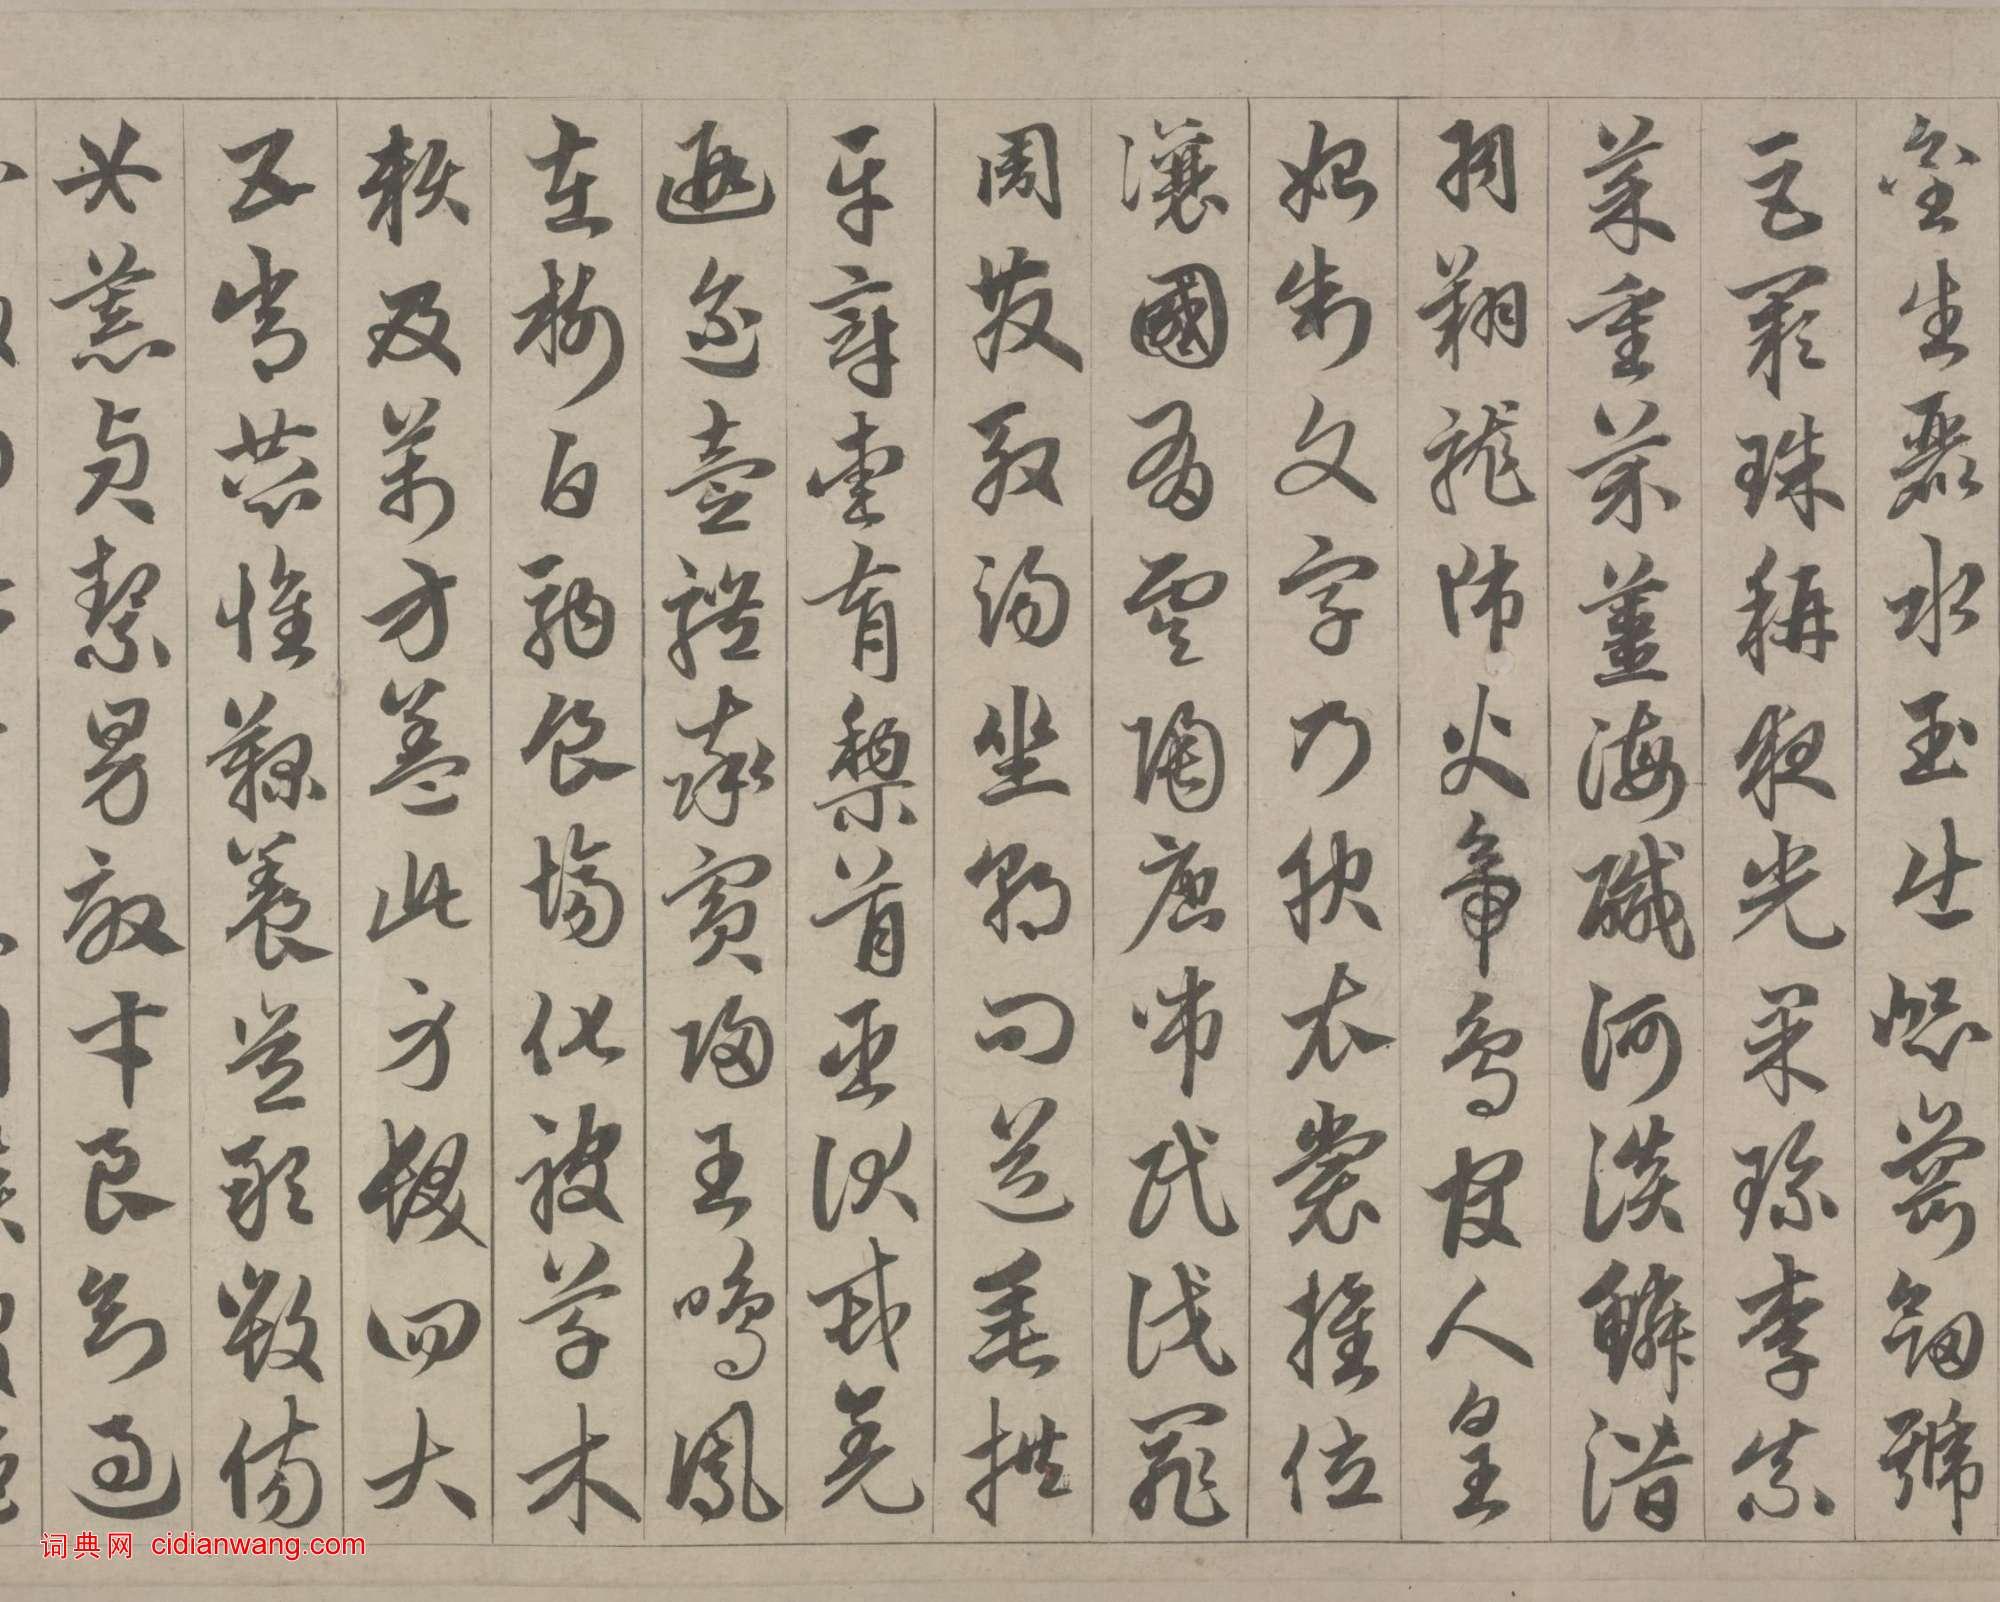 金生麗水玉出崐崗劍號
巨闕珠稱夜光果珍李柰
菜重芥薑海鹹河淡鱗潛
羽翔龍師火帝鳥官人皇
始制文字乃服衣裳推位
讓國有虞陶唐弔民伐罪
周發殷湯坐朝問道垂拱
平章愛育黎首臣伏戎羌
遐邇壹體率賓歸王鳴鳳
在樹白駒食場化被草木
賴及萬方蓋此身髮四大
五常恭惟鞠養豈敢毀傷
女慕貞絜男效才良知過
词典网 cidianwang.com